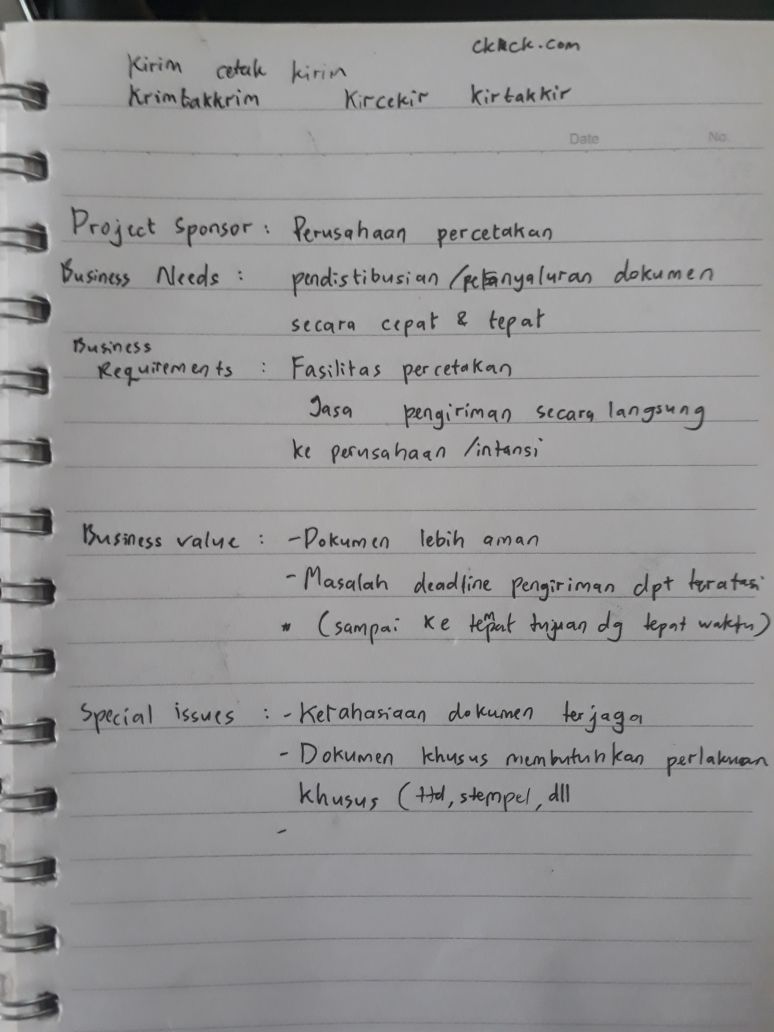 ckrck.com
Kirim cetak kirim
Krimtakkrim Kircekir kirtakkir
Date No.
Project Sponsor : Perusahaan percetakan
Business Needs : pendistibusian / penyaluran dokumen
secara cepat & tepat
Business
Requirements : Fasilitas percetakan
Jasa pengiriman secara langsung
ke perusahaan /intansi
Business value : - Dokumen lebih aman
- Masalah deadline pengiriman dpt teratasi
* (sampai ke tempat tujuan dg tepat waktu)
Special issues : - Kerahasiaan dokumen terjaga
- Dokumen khusus membutuhkan perlakuan
khusus (ttd, stempel, dll
-